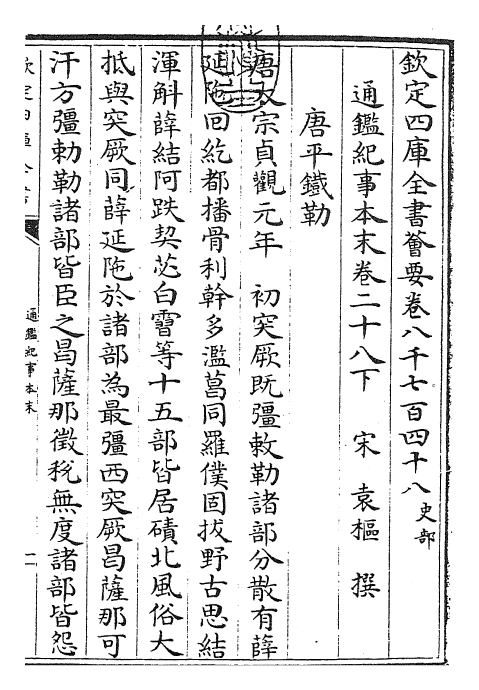 欽定四庫全書薈要卷八千七百四十八 史部
通鑑紀事本末卷二十八下 宋 袁樞 撰
唐平鐵勒
唐太宗貞觀元年 初突厥既彊敕勒諸部分散有薛
延陁回紇都播骨利幹多濫葛同羅僕固拔野古思結
渾斛薛結阿跌契苾白霫等十五部皆居磧北風俗大
抵與突厥同薛延陁於諸部為最彊西突厥曷薩那可
汗方彊勅勒諸部皆臣之曷薩那徵稅無度諸部皆怨
通鑑紀事本末